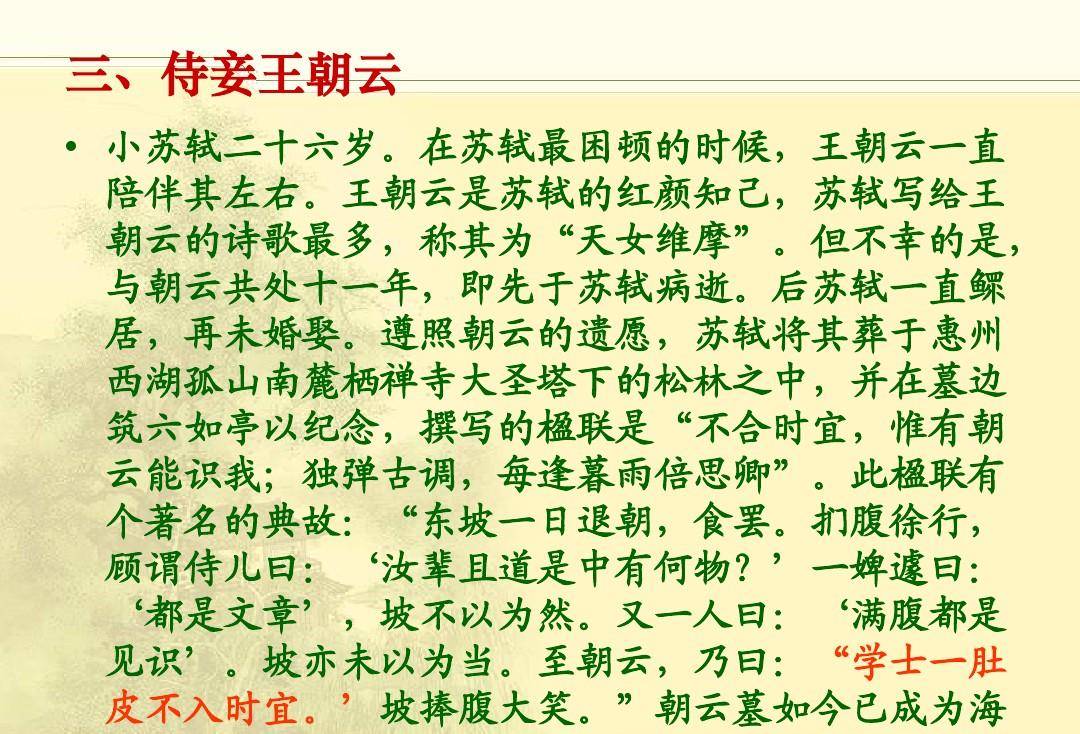 三、侍妾王朝云
• 小苏轼二十六岁。在苏轼最困顿的时候，王朝云一直
陪伴其左右。王朝云是苏轼的红颜知己，苏轼写给王
朝云的诗歌最多，称其为“天女维摩”。但不幸的是，
与朝云共处十一年，即先于苏轼病逝。后苏轼一直鳏
居，再未婚娶。遵照朝云的遗愿，苏轼将其葬于惠州
西湖孤山南麓栖禅寺大圣塔下的松林之中，并在墓边
筑六如亭以纪念，撰写的楹联是“不合时宜，惟有朝
云能识我；独弹古调，每逢暮雨倍思卿”。此楹联有
个著名的典故：“东坡一日退朝，食罢。扪腹徐行，
顾谓侍儿曰：‘汝辈且道是中有何物？’一婢遽曰：
‘都是文章’，坡不以为然。又一人曰：‘满腹都是
见识’。坡亦未以为当。至朝云，乃曰：“学士一肚
皮不入时宜。’坡捧腹大笑。”朝云墓如今已成为海